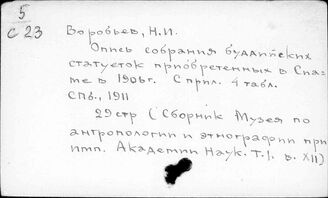 5
С 23
Воробьев, Н.И.
Опись собрания буддийских
статуеток приобретенных в Сиа-
ме в 1906г. С прил. 4 табл.
СПб., 1911
29 стр (Сборник Музея по
антропологии и этнографии при
имп. Академии Наук. Т.I. в. XII)